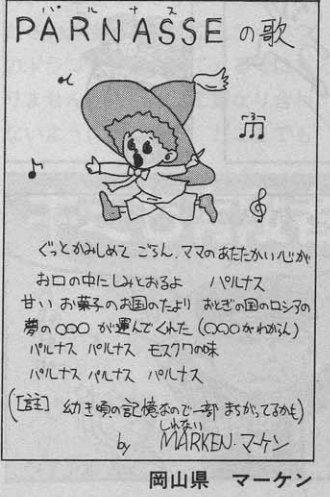 パルナス
PARNASSE の歌
ぐっとかみしめて ごらん、ママのあたたかい心が
お口の中にしみとおるよ パルナス
甘い お菓子のお国のたより おとぎの国のロシアの
夢の○○○ が運んでくれた (○○○がわからん)
パルナス パルナス モスクワの味
パルナス パルナス パルナス
([註] 幼き頃の記憶なので一部 まちがってるかも)
しれない
by MARKEN・マーケン
岡山県 マーケン